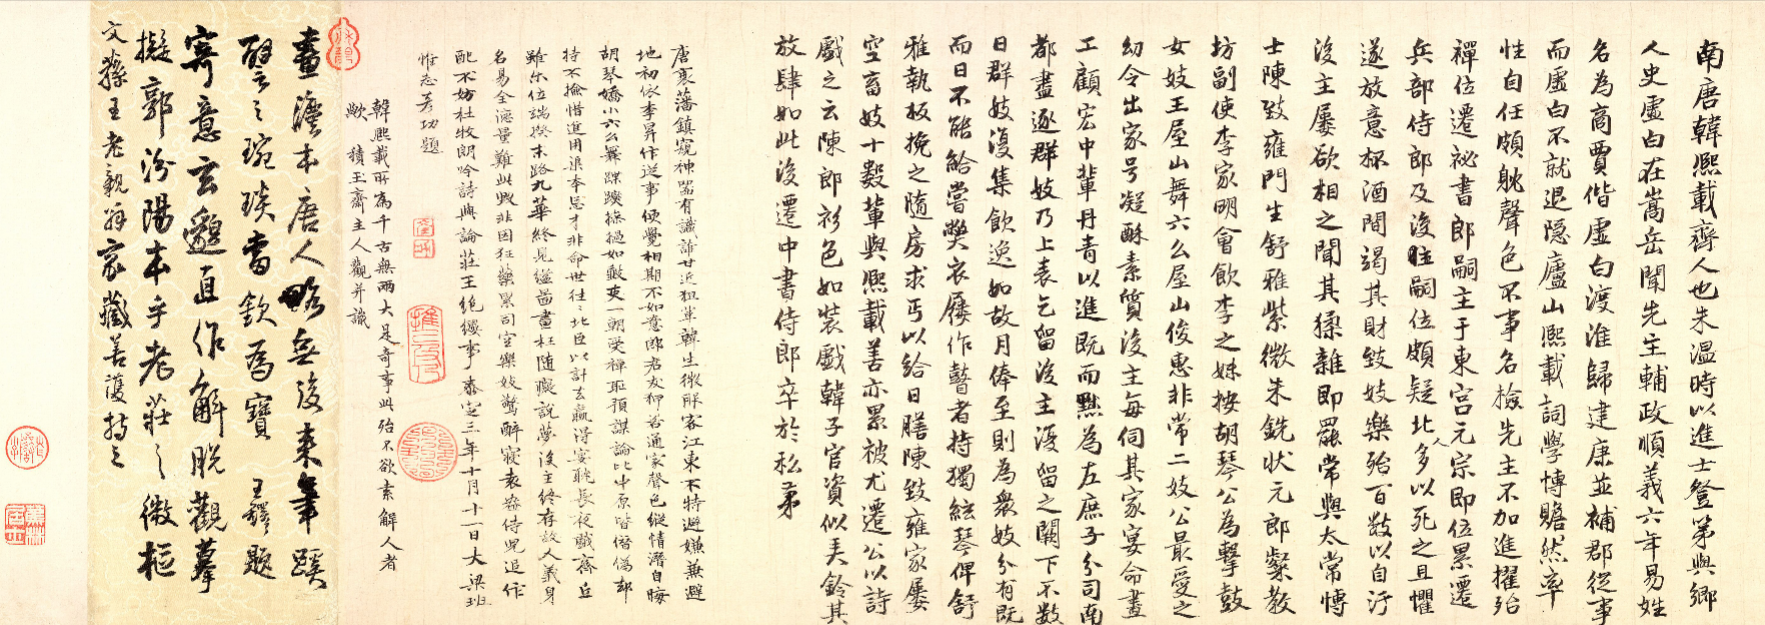 南唐韓熙載齊人也朱溫時以進士登第與鄉
人史虛白在嵩岳聞先主輔政順義六年易姓
名為商賈偕虛白渡淮歸建康並補郡從事
而虛白不就退隱廬山熙載詞學博贍然率
性自任頗耽聲色不事名檢先主不加進擢殆
禪位遷祕書郎嗣主于東宮元宗即位累遷
兵部侍郎及後主嗣位頗疑北人多以死之且懼
遂放意杯酒間竭其財致妓樂殆百數以自汙
後主屢欲相之聞其猱雜即罷常與太常博
士陳致雍門生舒雅紫微朱銑狀元郎粲教
坊副使李家明會飲李之妹按胡琴公為擊鼓
女妓王屋山舞六么屋山俊惠非常二妓公最愛之
幼令出家号凝酥素質後主每伺其家宴命畫
工顧宏中輩丹青以進既而黜為左庶子分司南
都盡逐群妓乃上表乞留後主復留之闕下不數
日群妓復集飲逸如故月俸至則為衆妓分有既
而日不能給嘗弊衣屨作瞽者持獨絃琴俾舒
雅執板挽之隨房求丐以給日膳陳致雍家屢
空畜妓十數輩與熙載善亦累被尤遷公以詩
戲之云陳郎衫色如裝戲韓子官資似美鈴其
放肆如此後遷中書侍郎卒於私第
唐衰藩鎮窺神器有識誰甘近狙輩韓生微服客江東不特避嫌兼避
地初依李昇作逆事便覺相期不如意郎君友狎若通家聲色縱情潛自晦
胡琴嬌小六么舞蹀躞摻撾如鼓吏一朝受禪恥預謀論比中原皆僭偽却
持不撿惜進用渠本忌才非命世往往北臣以計去贏得宴耽長夜戲齊丘
雖尔位端揆末路九華終見縊圖畫柱隨癡說夢後主終存故人義身
名易全德量難此毀非因狂藥累司空樂妓驚醉寢袁盎侍兒追作
配不妨杜牧朗吟詩與論莊王絕纓事 泰定三年十月十一日大梁班
惟志彥功題
韓熙載所為千古無兩大是奇事此殆不欲索解人者
歟 積玉齋主人觀并識
畫法本唐人略無後來筆蹊
譬之琬琰當欽為寶
寄意玄邈直作解脫觀摹
擬郭汾陽本乎老莊之微旨
王鐸題
文蓀王老親翁家藏善護持之